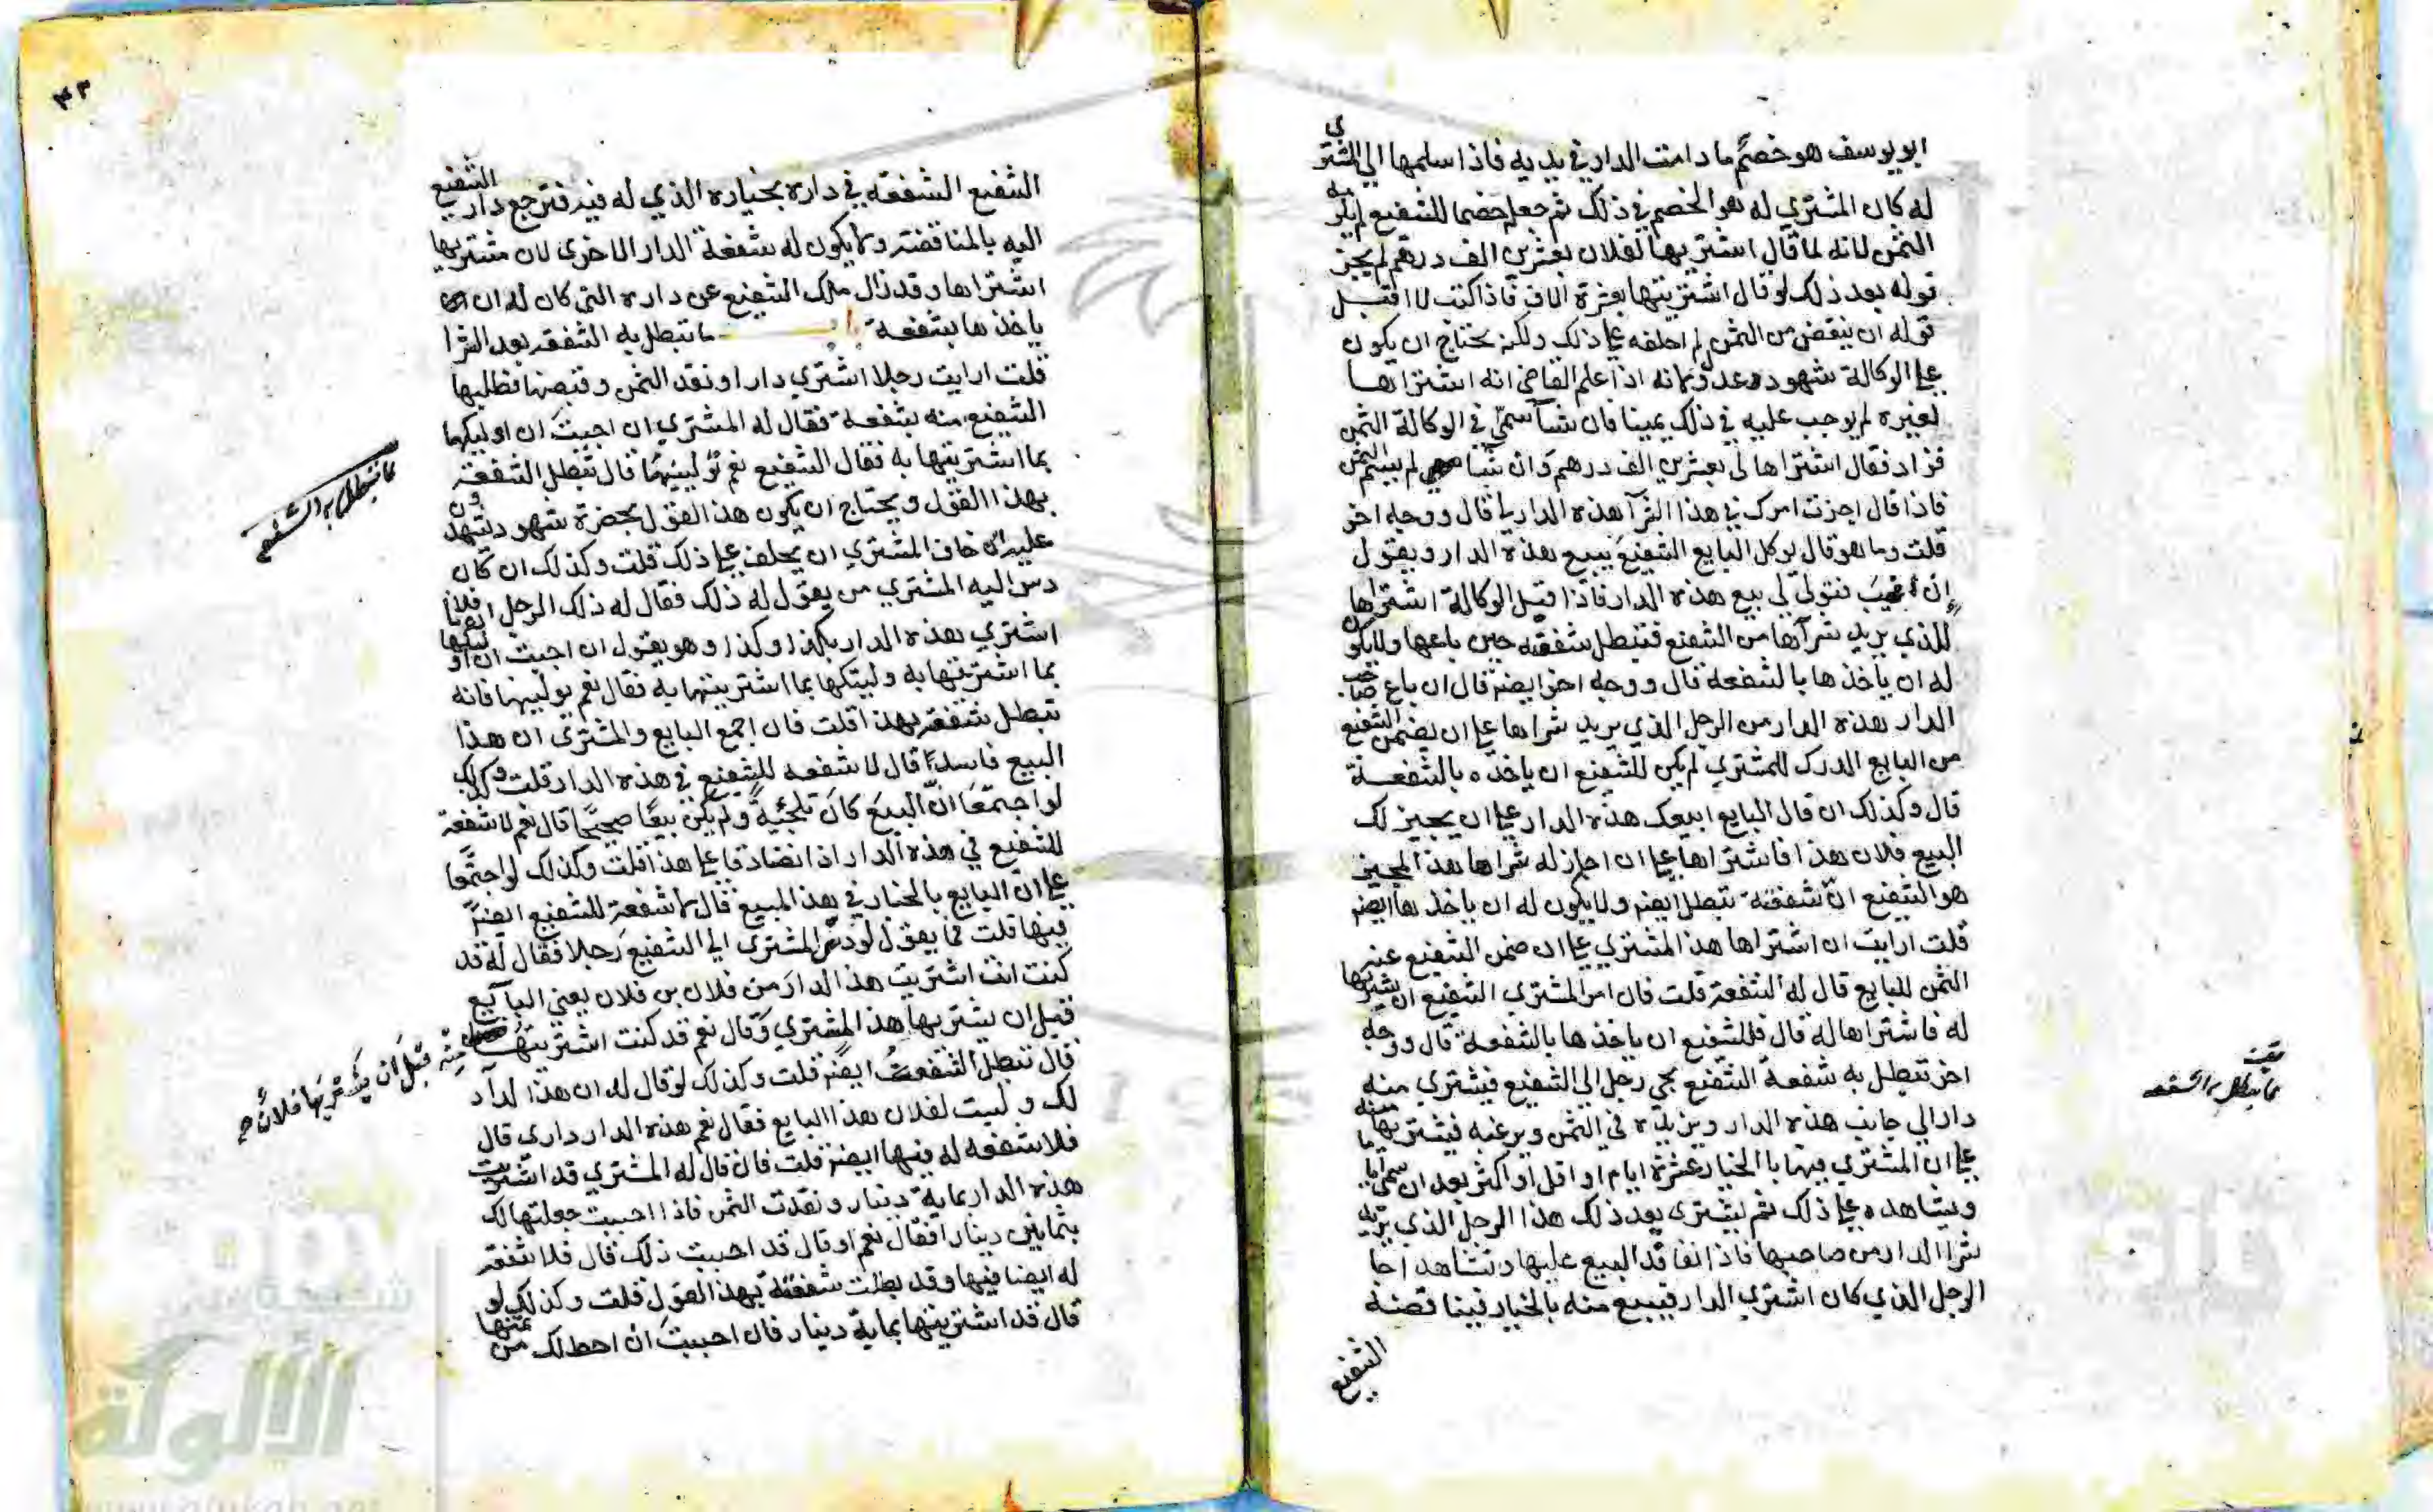 ابو يوسف هو خصم ما دامت الدار في يديه فاذا سلمها الي المشتري
له كان المشتري له هو الخصم في ذلك ثم جعله خصما للشفيع لم يكن به
الثمن لانه لما قال اشتريتها لفلان بعشرين الف درهم لم يجز
قوله بعد ذلك لو قال اشتريتها بعشرة الاف فاذا كنت لا اقبل
قوله ان ينقض من الثمن لم احلفه علي ذلك ولكن يحتاج ان يكون
علي الوكالة شهود عدول لانه اذا علم القاضي انه اشتراها
لغيره لم يوجب عليه في ذلك يمينا فان شآ سمي في الوكالة الثمن
فزاد فقال اشتراها لي بعشرين الف درهم وان شا لم يسم الثمن
فاذا قال اجزت امرك في هذا الشرآ هذه الدار لي قال ووجه اخر
قلت وما هو قال يوكل البايع الشفيع يبيع هذه الدار ويقول
ان فتولي لي بيع هذه الدار فاذا قبل الوكالة اشتراها
للذي يريد شرآها من الشفيع فتبطل شفعته حين باعها ولا يكون
له ان يأخذها بالشفعة قال ووجه اخر ايضا قال ان باع صاحب
الدار هذه الدار من الرجل الذي يريد شراها علي ان يضمن الشفيع
من البايع الدرك للمشتري لم يكن للشفيع ان ياخذه بالشفعة
قال وكذلك ان قال البايع ابيعك هذه الدار علي ان يجيز لك
البيع فلان هذا فاشتراها علي ان اجاز له شراها هذا المجيز
هو الشفيع ان شفعته تبطل ايضا ولا يكون له ان ياخذها ايضا
قلت ارايت ان اشتراها هذا المشتري علي ان ضمن الشفيع عنه
الثمن للبايع قال له الشفعة قلت فان امر المشتري الشفيع ان يشتريها
له فاشتراها له قال فللشفيع ان ياخذها بالشفعة قال ووجه
اخر تبطل به شفعة الشفيع يجي رجل الي الشفيع فيشتري منه
دارا الي جانب هذه الدار ويزيده في الثمن ويرغبه فيشتريها منه
علي ان المشتري فيها بالخيار عشرة ايام او اقل او اكثر بعد ان سمي اياما
ويشاهده علي ذلك ثم يشتري بعد ذلك هذا الرجل الذي يريد
شرا الدار من صاحبها فاذا تعاقد البيع عليها وتشاهدا جا
الرجل الذي كان اشتري الدار فيبيع منه بالخيار فينا قضه
الشفيع
تبطل به الشفعة
٤٣
الشفيع الشفعة في داره بخياره الذي له فيه فترجع دار الشفيع
اليه بالمناقضة ولا يكون له شفعة الدار الاخري لان مشتريها
اشتراها وقد زال ملك الشفيع عن داره التي كان له ان
ياخذها بشفعة ما تبطل به الشفعة بعد الشرا
قلت ارايت رجلا اشتري دارا ونقد الثمن وقبضها فطلبها
الشفيع منه بشفعة فقال له المشتري ان احببت ان اوليكها
بما اشتريتها به فقال الشفيع نعم تولينيها قال تبطل الشفعة
بهذا القول ويحتاج ان يكون هذا القول بحضرة شهود يشهدون
عليه ان خاف المشتري ان يحلف علي ذلك قلت وكذلك ان كان
دس اليه المشتري من يقول له ذلك فقال له ذلك الرجل ان فلانا
اشتري هذه الدار بكذا وكذا وهو يقول ان احببت ان اوليكها
بما اشتريتها به وليتكها بما اشتريتها به فقال نعم يولينيها فانه
تبطل شفعته بهذا قلت فان اجمع البايع والمشتري ان هذا
البيع فاسدا قال لا شفعة للشفيع في هذه الدار قلت وكذلك
لو اجتمعا ان البيع كان تلجئة ولم يكن بيعا صحيحا قال نعم لا شفعة
للشفيع في هذه الدار اذا تصادقا علي هذا قلت وكذلك لو اجتمعا
علي ان البايع بالخيار في هذا المبيع قال لا شفعة للشفيع ايضا
فيها قلت فما يقول لو دس المشتري الي الشفيع رجلا فقال له قد
كنت انت اشتريت هذا الدار من فلان بن فلان يعني البآيع
قبل ان يشتريها هذا المشتري وقال نعم قد كنت اشتريتها
منه قبل ان يشتريها فلان صح
قال تبطل الشفعة ايضا قلت وكذلك لو قال له ان هذا الدار
لك وليست لفلان هذا البايع فقال نعم هذه الدار داري قال
فلا شفعة له فيها ايضا قلت فان قال له المشتري قد اشتريت
هذه الدار بماية دينار ونقدت الثمن فاذا احببت جعلتها لك
بثمانين دينارا فقال نعم او قال قد احببت ذلك قال فلا شفعة
له ايضا فيها وقد بطلت شفعته بهذا القول قلت وكذلك لو
قال قد اشتريتها بماية دينار فان احببت ان احط لك من ثمنها
ما تبطل به الشفعة
شبكة
الألوكة
www.alukah.net